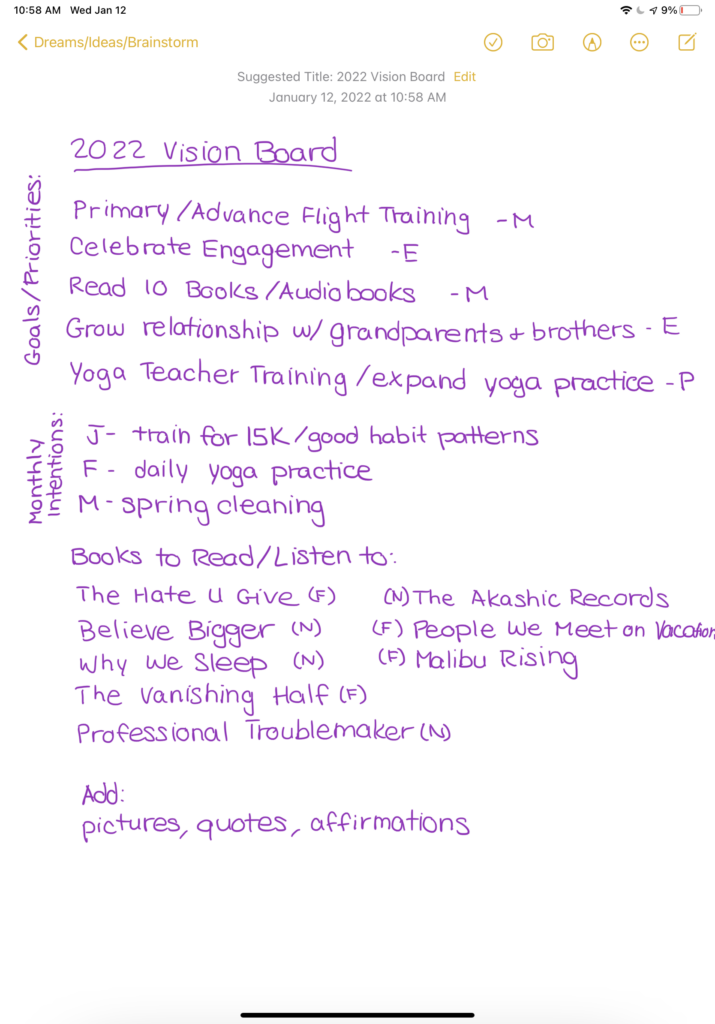 10:58 AM Wed Jan 12 9%
Dreams/Ideas/Brainstorm
Suggested Title: 2022 Vision Board Edit
January 12, 2022 at 10:58 AM
2022 Vision Board
Goals/Priorities:
Primary/Advance Flight Training - M
Celebrate Engagement - E
Read 10 Books/Audiobooks - M
Grow relationship w/ grandparents + brothers - E
Yoga Teacher Training/expand yoga practice - P
Monthly
Intentions:
J - train for 15K/good habit patterns
F - daily yoga practice
M - spring cleaning
Books to Read/Listen to:
The Hate U Give (F) (N) The Akashic Records
Believe Bigger (N) (F) People We Meet on Vacation
Why We Sleep (N) (F) Malibu Rising
The Vanishing Half (F)
Professional Troublemaker (N)
Add:
pictures, quotes, affirmations